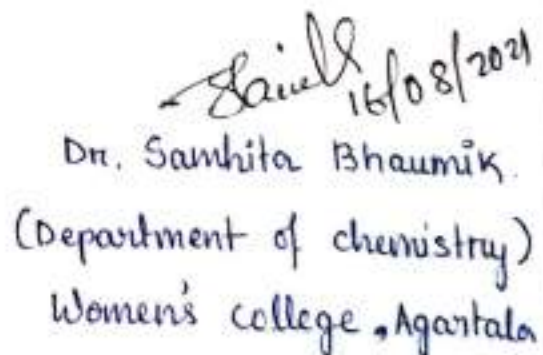 16/08/2021
Dr. Samhita Bhaumik.
(Department of chemistry)
Women's college, Agartala